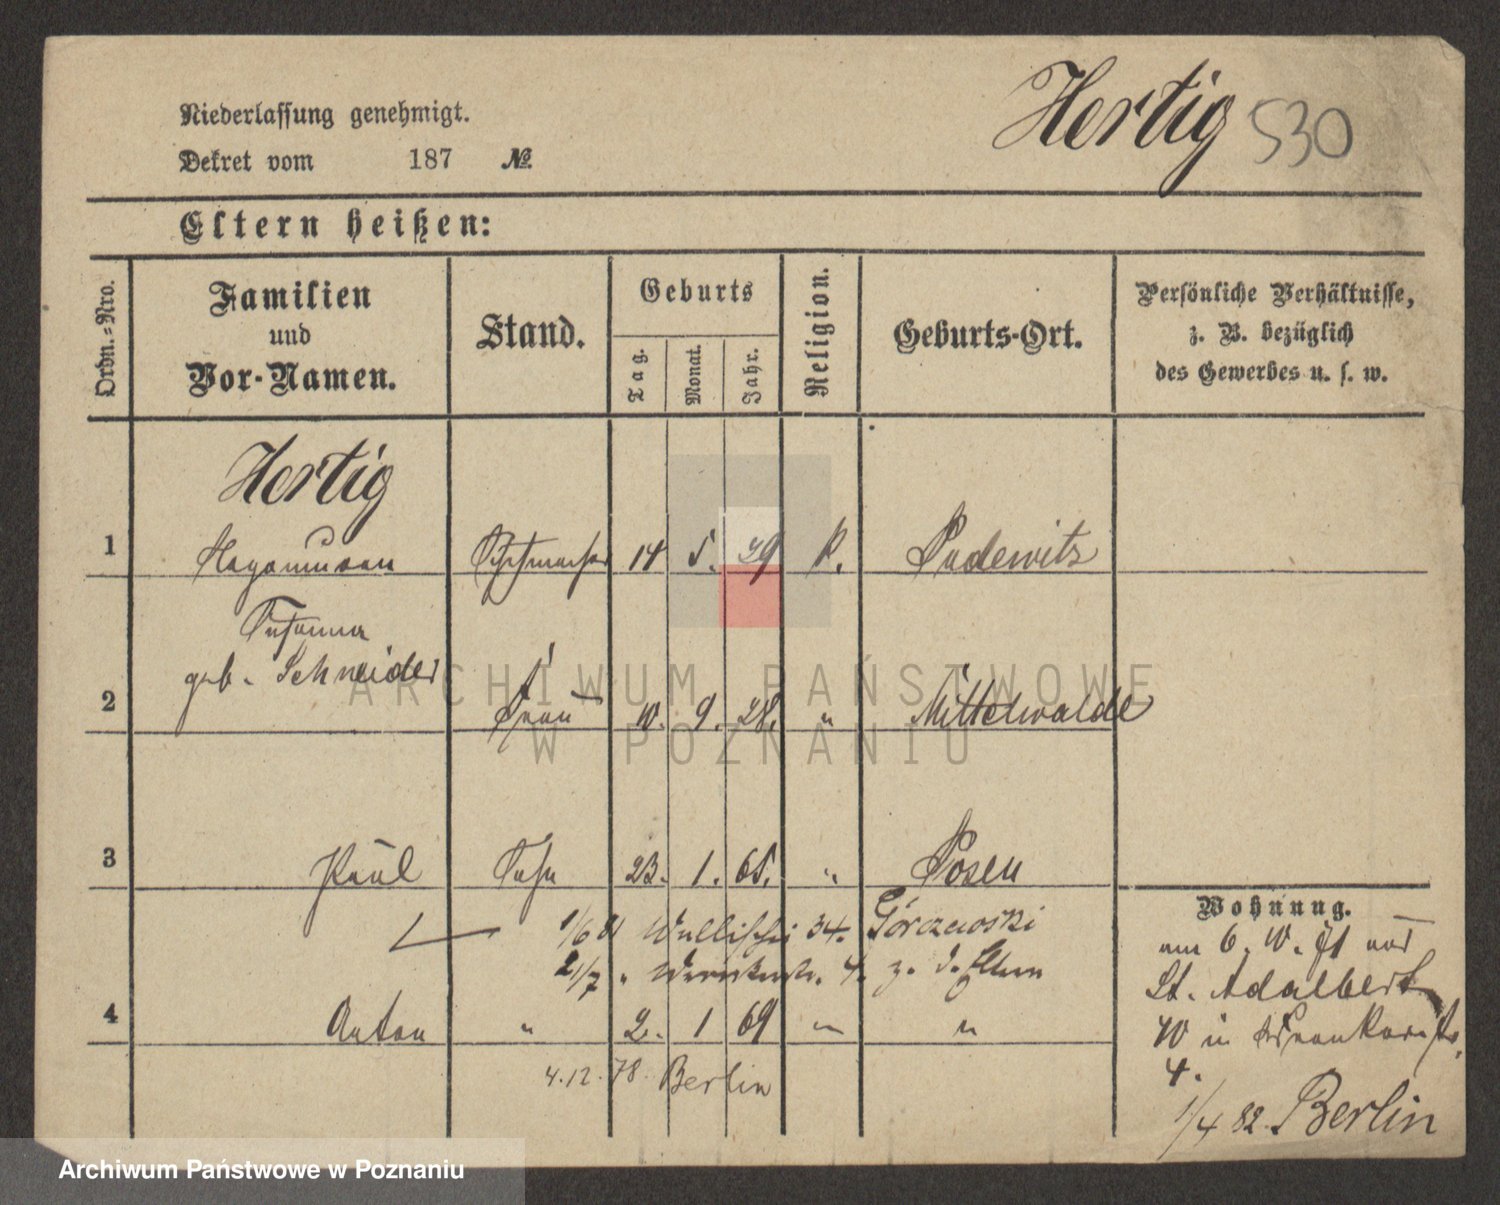 Niederlassung genehmigt.
Dekret vom 187 №
Hertig 530
Eltern heißen:
Ordn.-Nro.
Familien
und
Vor-Namen.
Stand.
Geburts
Tag.
Monat.
Jahr.
Religion.
Geburts-Ort.
Persönliche Verhältnisse,
z. B. bezüglich
des Gewerbes u. s. w.
Hertig
1 14 5. 39 k. Pudewitz
Susanna
geb. Schneider
2 Frau 10. 9. 28. " Mittelwalde
3 Paul Sohn 23. 1. 65. " Posen
1/6 81 Wallischei 34. Górczewski
21/7 " 4. z. d. Eltern
4 Anton " 2. 1 69 " "
4.12.78 Berlin
Wohnung.
am 6. 10. 71 von
St. Adalbert
40 in
4.
1/4 82. Berlin
ARCHIWUM PAŃSTWOWE
W POZNANIU
Archiwum Państwowe w Poznaniu